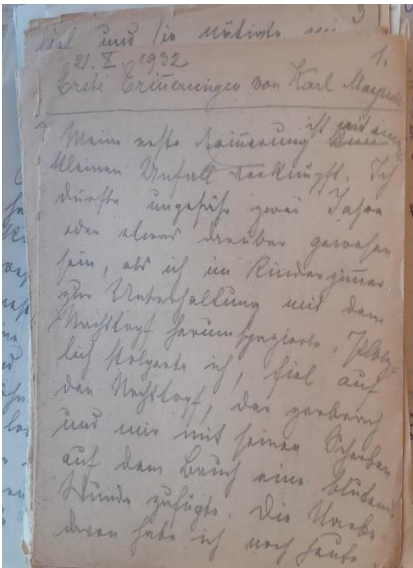 und sie nötigte 3
1.
21. X. 1932
Erste Erinnerungen von Karl
Meine erste Erinnerung ist mit einem
kleinen Unfall verknüpft. Ich
dürfte ungefähr zwei Jahre
oder etwas darüber gewesen
sein, als ich im Kinderzimmer
zur Unterhaltung mit dem
Nachttopf herumspazierte. Plötz-
lich stolperte ich, fiel auf
den Nachttopf, der zerbrach
und mir mit seinen Scherben
auf dem Bauch eine blutende
Wunde zufügte. Die Narbe
davon habe ich noch heute